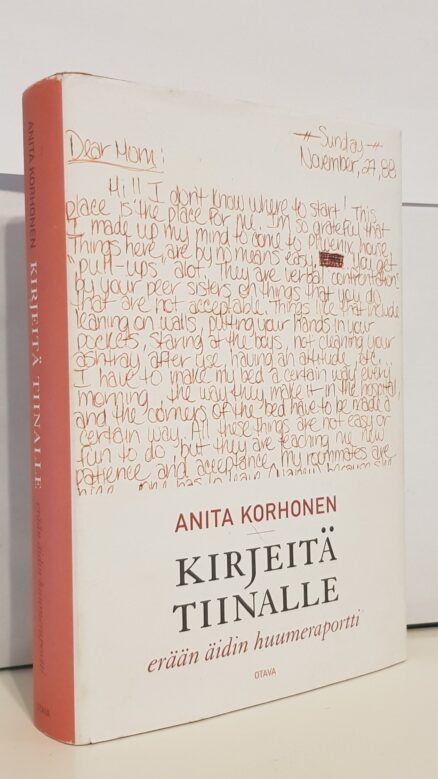 ANITA KORHONEN
KIRJEITÄ TIINALLE
erään äidin huumeraportti
OTAVA
-#- Sunday -#-
November, 27, 88
Dear Mom;
Hi!! I don't know where to start! This
place is the place for me. I'm so grateful that
I made up my mind to come to phoenix house.
Things here are by no means easy. You get
"pull-ups" alot. They are verbal confrontations
by your peer sisters on things that you do
that are not acceptable. Things like that include
leaning on walls, putting your hands in your
pockets, staring at the boys, not cleaning your
ashtray after use, having an attitude, etc..
I have to make my bed a certain way every
morning, the way they make it in the hospital,
and the corners of the bed have to be made a
certain way. All these things are not easy or
fun to do, but they are teaching me new
patience and acceptance. My roommates are
ANITA KORHONEN
KIRJEITÄ
TIINALLE
erään äidin huumeraportti
OTAVA